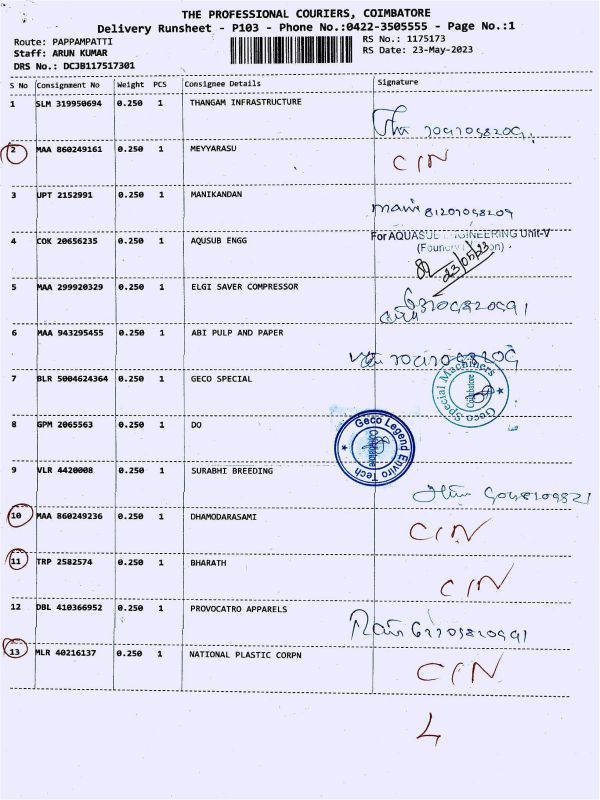 THE PROFESSIONAL COURIERS, COIMBATORE
Delivery Runsheet - P103 - Phone No.:0422-3505555 - Page No.:1
Route: PAPPAMPATTI
RS No.: 1175173
Staff: ARUN KUMAR
RS Date: 23-May-2023
DRS No.: DCJB117517301
S No Consignment No Weight PCS Consignee Details Signature
1 SLM 319950694 0.250 1 THANGAM INFRASTRUCTURE
2 MAA 860249161 0.250 1 MEYYARASU CIN
3 UPT 2152991 0.250 1 MANIKANDAN
4 COK 20656235 0.250 1 AQUSUB ENGG For AQUASUB ENGINEERING Unit-V
23/05/23
5 MAA 299920329 0.250 1 ELGI SAVER COMPRESSOR
6 MAA 943295455 0.250 1 ABI PULP AND PAPER
7 BLR 5004624364 0.250 1 GECO SPECIAL Geco Special Machiners Coimbatore
8 GPM 2065563 0.250 1 DO Geco Legend Enviro Tech Coimbatore
9 VLR 4420008 0.250 1 SURABHI BREEDING
10 MAA 860249236 0.250 1 DHAMODARASAMI CIN
11 TRP 2582574 0.250 1 BHARATH CIN
12 DBL 410366952 0.250 1 PROVOCATRO APPARELS
13 MLR 40216137 0.250 1 NATIONAL PLASTIC CORPN CIN